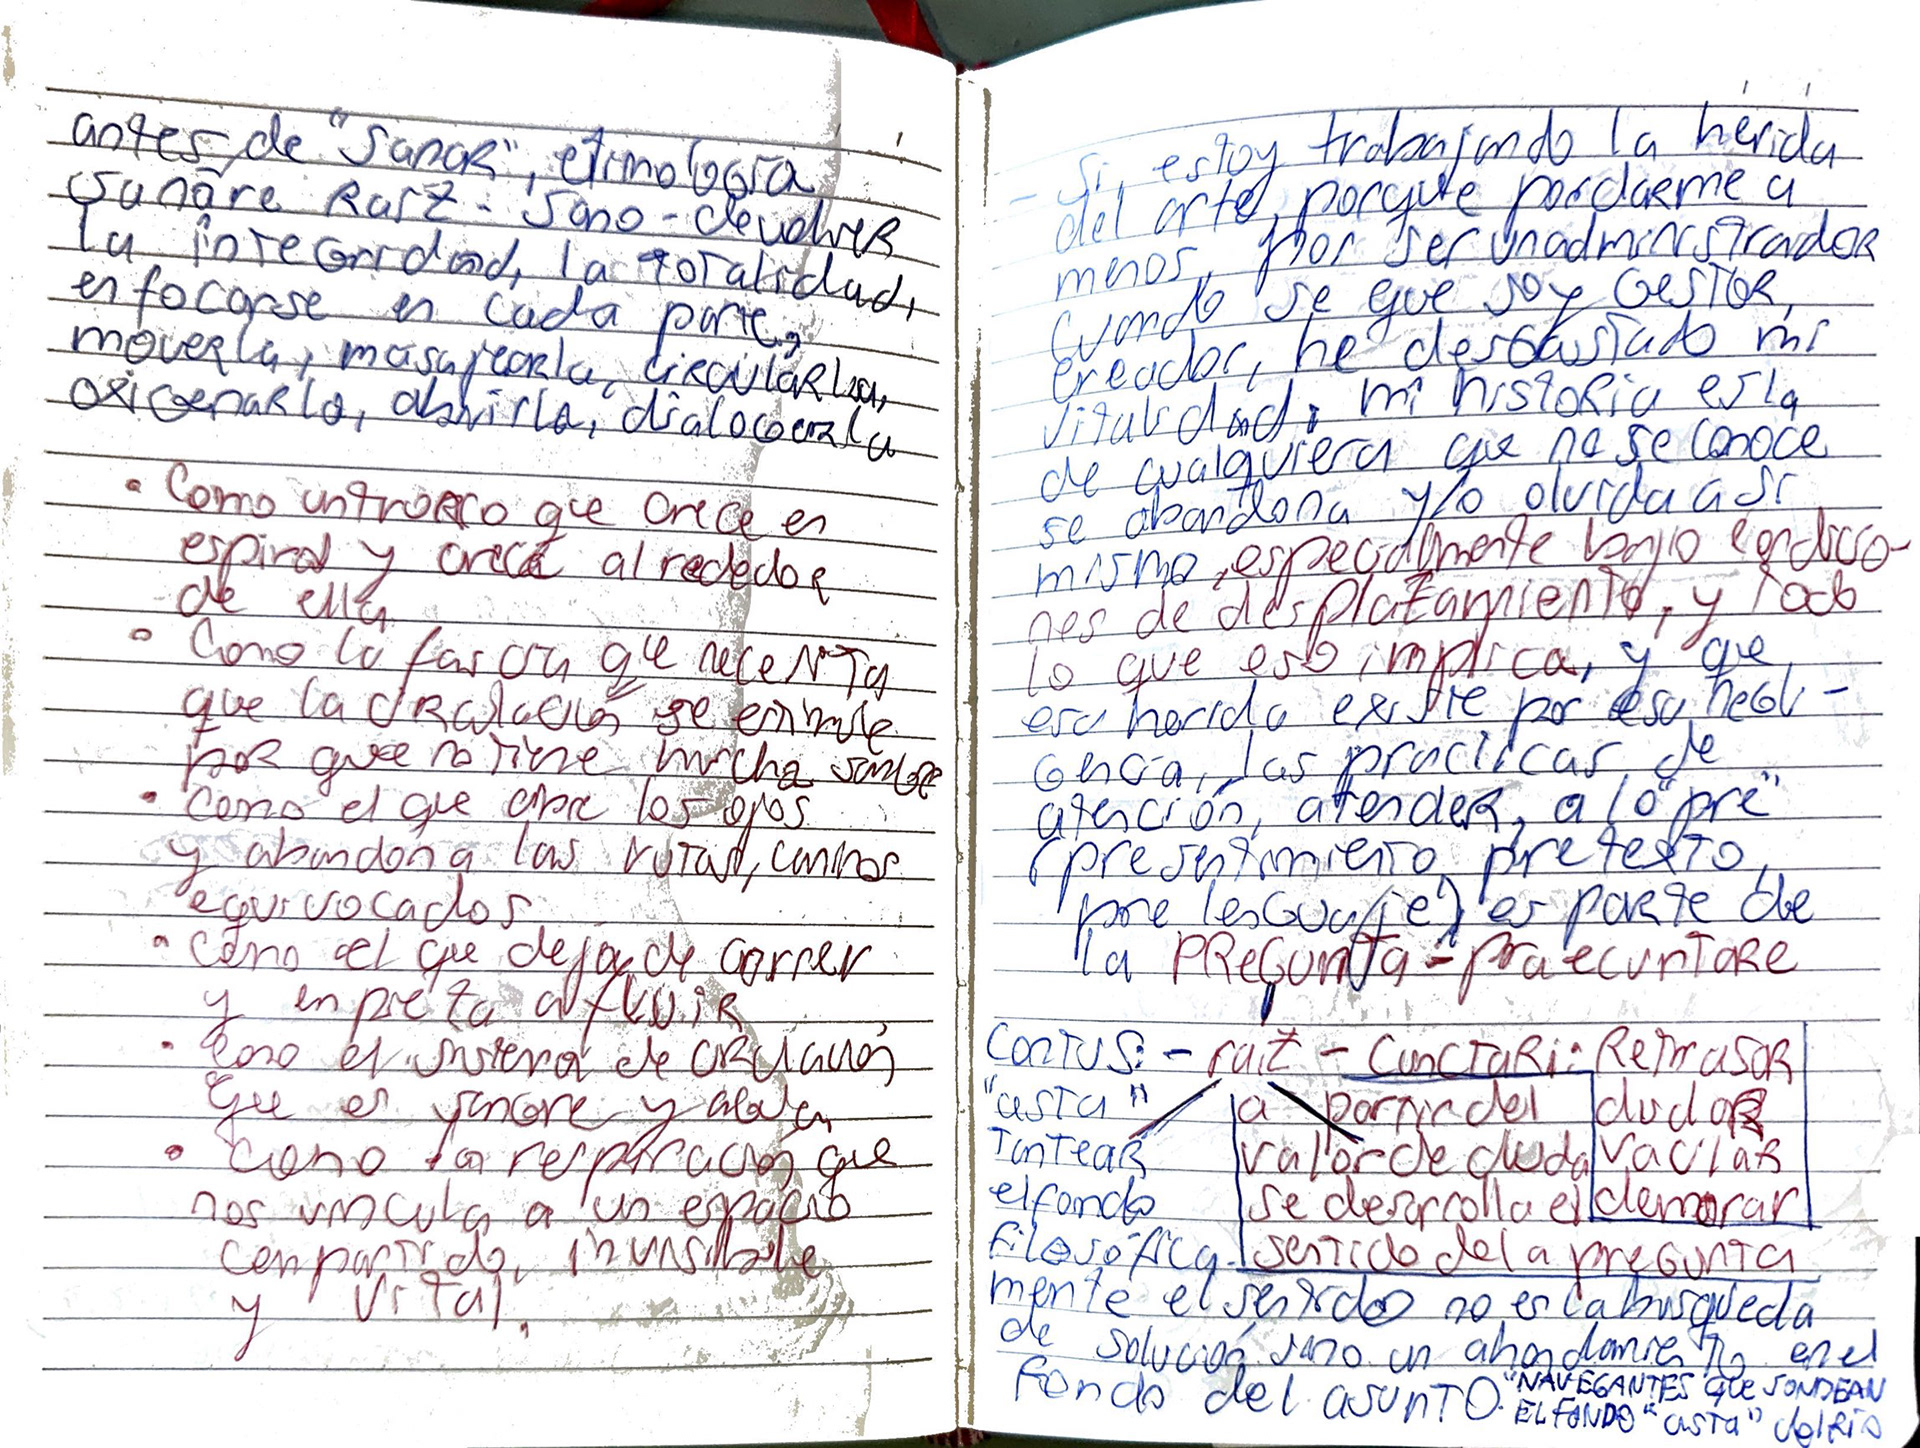 antes de "sanar", etimología
sanāre Raíz: sano - devolver
la integridad, la totalidad,
enfocarse en cada parte,
moverla, masajearla, circularla,
oxigenarla, abrirla, dialogarla
• Como un tronco que crece en
espiral y crece alrededor
de ella
• Como la fascia que necesita
que la circulación se estimule
por que no tiene mucha sangre
• como el que abre los ojos
y abandona las rutas, caminos
equivocados
• como el que deja de correr
y empieza a fluir
• como el sistema de circulación
que es sangre y
• como la respiración que
nos vincula a un espacio
compartido, invisible
y vital.
- Si, estoy trabajando la herida
del arte, porque por darme a
menos, por ser un administrador
cuando se que soy gestor,
creador, he desgastado mi
vitalidad, mi historia es la
de cualquiera que no se conoce
se abandona y/o olvida a si
mismo, especialmente bajo condicio-
nes de desplazamiento, y todo
lo que eso implica, y que
esa herida existe por esa negli-
gencia, las prácticas de
atención, atender, a lo "pre"
(presentimiento, pretexto,
pre lenguaje) es parte de
la PREGUNTA - praecuntare
contus: - raíz - cunctari: Retrasar
"asta" a partir del dudar
Tantear valor de duda vacilar
el fondo se desarrolla el demorar
filosófica sentido de la pregunta
mente el sentido no es la busqueda
de solución sino un ahondamiento en el
fondo del asunto. "NAVEGANTES que SONDEAN
EL FONDO "asta" del Río